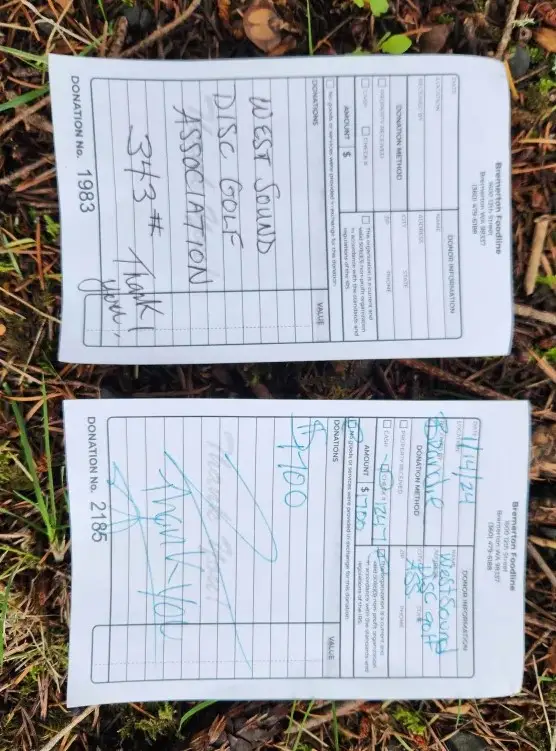 Bremerton Foodline
1600 12th Street
Bremerton WA 98337
(360) 479-6188
DATE
LOCATION
RECEIVED BY
DONATION METHOD
PROPERTY RECEIVED
CASH
CHECK #
AMOUNT $
DONOR INFORMATION
NAME
ADDRESS
CITY
STATE
ZIP
PHONE
This organization is a current and
valid 501(c)(3) non-profit organization
in accordance with the standards and
regulations of the IRS.
No goods or services were provided in exchange for this donation
DONATIONS
VALUE
WEST SOUND
DISC GOLF
ASSOCIATION
343 # Thank
you!
DONATION No. 1983
Bremerton Foodline
1600 12th Street
Bremerton WA 98337
(360) 479-6188
11/14/24
DONATION METHOD
PROPERTY RECEIVED
CASH
CHECK #
AMOUNT $ 1700
DONOR INFORMATION
West Sound
Disc Golf
ZIP
PHONE
This organization is a current and
valid 501(c)(3) non-profit organization
in accordance with the standards and
regulations of the IRS.
No goods or services were provided in exchange for this donation
DONATIONS
VALUE
$1700
Thank You
DONATION No. 2185